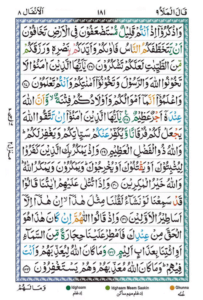 قَالَ الْمَلَاُ ٩ ١٨١ الْاَنْفَال ٨
وَاذْكُرُوْٓا اِذْ اَنْتُمْ قَلِيْلٌ مُّسْتَضْعَفُوْنَ فِى الْاَرْضِ تَخَافُوْنَ
اَنْ يَّتَخَطَّفَكُمُ النَّاسُ فَاٰوٰىكُمْ وَاَيَّدَكُمْ بِنَصْرِهٖ وَرَزَقَكُمْ
مِّنَ الطَّيِّبٰتِ لَعَلَّكُمْ تَشْكُرُوْنَ يٰٓاَيُّهَا الَّذِيْنَ اٰمَنُوْا لَا
تَخُوْنُوا اللّٰهَ وَالرَّسُوْلَ وَتَخُوْنُوْٓا اَمٰنٰتِكُمْ وَاَنْتُمْ تَعْلَمُوْنَ
وَاعْلَمُوْٓا اَنَّمَآ اَمْوَالُكُمْ وَاَوْلَادُكُمْ فِتْنَةٌ وَّاَنَّ اللّٰهَ
عِنْدَهٗٓ اَجْرٌ عَظِيْمٌ يٰٓاَيُّهَا الَّذِيْنَ اٰمَنُوْٓا اِنْ تَتَّقُوا اللّٰهَ
يَجْعَلْ لَّكُمْ فُرْقَانًا وَّيُكَفِّرْ عَنْكُمْ سَيِّاٰتِكُمْ وَيَغْفِرْ لَكُمْ
وَاللّٰهُ ذُو الْفَضْلِ الْعَظِيْمِ وَاِذْ يَمْكُرُ بِكَ الَّذِيْنَ كَفَرُوْا
لِيُثْبِتُوْكَ اَوْ يَقْتُلُوْكَ اَوْ يُخْرِجُوْكَ وَيَمْكُرُوْنَ وَيَمْكُرُ اللّٰهُ
وَاللّٰهُ خَيْرُ الْمٰكِرِيْنَ وَاِذَا تُتْلٰى عَلَيْهِمْ اٰيٰتُنَا قَالُوْا
قَدْ سَمِعْنَا لَوْ نَشَآءُ لَقُلْنَا مِثْلَ هٰذَآ اِنْ هٰذَآ اِلَّآ
اَسَاطِيْرُ الْاَوَّلِيْنَ وَاِذْ قَالُوا اللّٰهُمَّ اِنْ كَانَ هٰذَا هُوَ
الْحَقَّ مِنْ عِنْدِكَ فَاَمْطِرْ عَلَيْنَا حِجَارَةً مِّنَ السَّمَآءِ
اَوِ ائْتِنَا بِعَذَابٍ اَلِيْمٍ وَمَا كَانَ اللّٰهُ لِيُعَذِّبَهُمْ وَاَنْتَ
فِيْهِمْ وَمَا كَانَ اللّٰهُ مُعَذِّبَهُمْ وَهُمْ يَسْتَغْفِرُوْنَ
Idghaam Idghaam Meem Saakin Ghunna